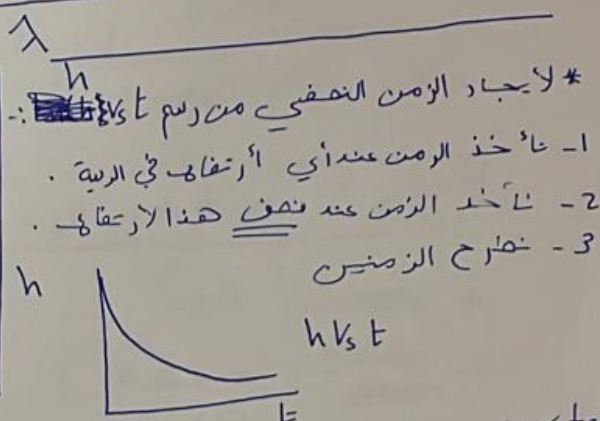 λ
h
* لايجاد الزمن النصفي من رسم h Vs t :-
1- نأخذ الزمن عند أي أرتفاع في الرسمة .
2- نأخذ الزمن عند نصف هذا الارتفاع .
3- نطرح الزمنين
h
h Vs t
t